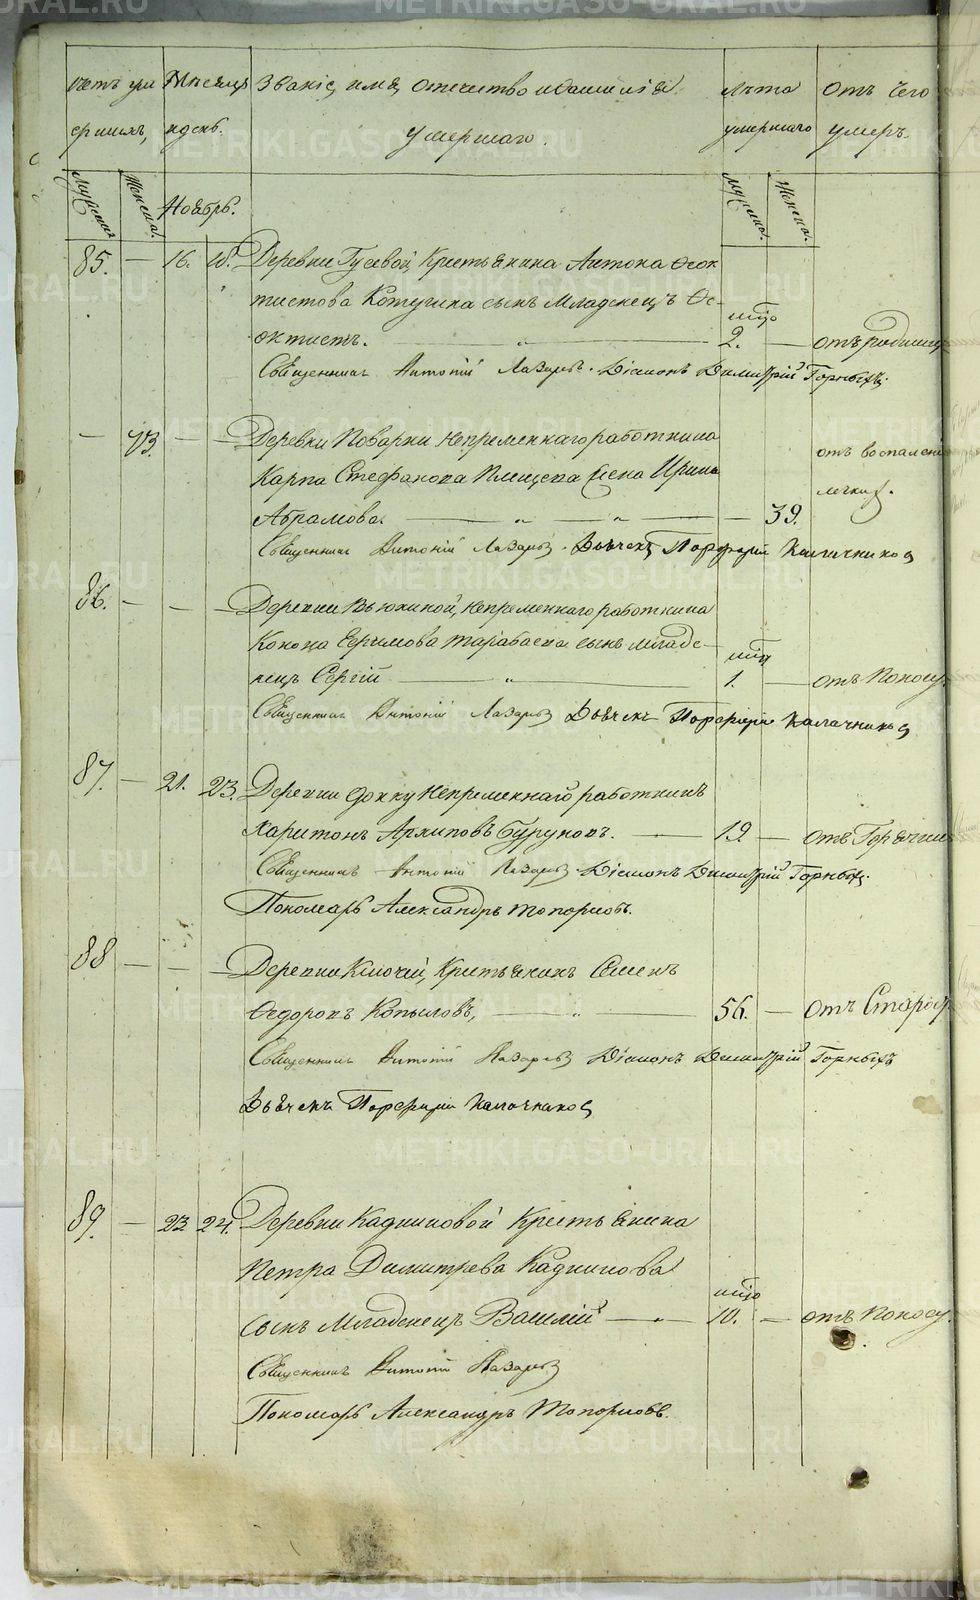 Счетъ уме Мѣсяцъ Званіе, имя, отечество и фамилія Лѣта Отъ чего
ершихъ, и день. умершаго. умершаго умеръ.
Мужеска Женска. Ноябрь. Мужеска. Женска.
85. — 16. 18. Деревни Гусевой, Крестьянина Антона Ѳеок
тистова Котугина сынъ Младенецъ Ѳе-
мѣсо
октистъ. — „ — 2. — отъ родимца
Священникъ Антоній Лазаревъ. Діаконъ Димитрій Горныхъ.
— 73. — — Деревни Поварни Непременнаго работника отъ воспален
Карпа Стефанова Плещева Жена Ирина легкихъ.
Абрамова. — „ — „ — 39.
Священникъ Антоній Лазаревъ. Дьячекъ Порфирій Калачниковъ
86. — — — Деревни Вьюхиной, Непременнаго работника
Конона Ефимова Тарабаева сынъ младе-
мѣсо
нецъ Сергій — „ — 1. — отъ Поносу.
Священникъ Антоній Лазаревъ Дьячекъ Порфирій Калачниковъ
87. — 21. 23. Деревни Фокку Непременнаго работникъ
Харитонъ Архиповъ Буруновъ. — 19 — отъ Горячки
Священникъ Антоній Лазаревъ. Діаконъ Димитрій Горныхъ.
Пономарь Александръ Топорковъ.
88 — — — Деревни Ключей, Крестьянинъ Семенъ
Ѳедоровъ Копыловъ, — „ — 56. — Отъ Старос
Священникъ Антоній Лазаревъ Діаконъ Димитрій Горныхъ
Дьячекъ Порфирій Калачниковъ
89. — 23 24. Деревни Кадниковой Крестьянина
Петра Димитрева Кадникова
мѣсо
сынъ Младенецъ Василій — „ — 10. — отъ Поносу.
Священникъ Антоній Лазаревъ
Пономарь Александръ Топорковъ.
METRIKI.GASO-URAL.RU